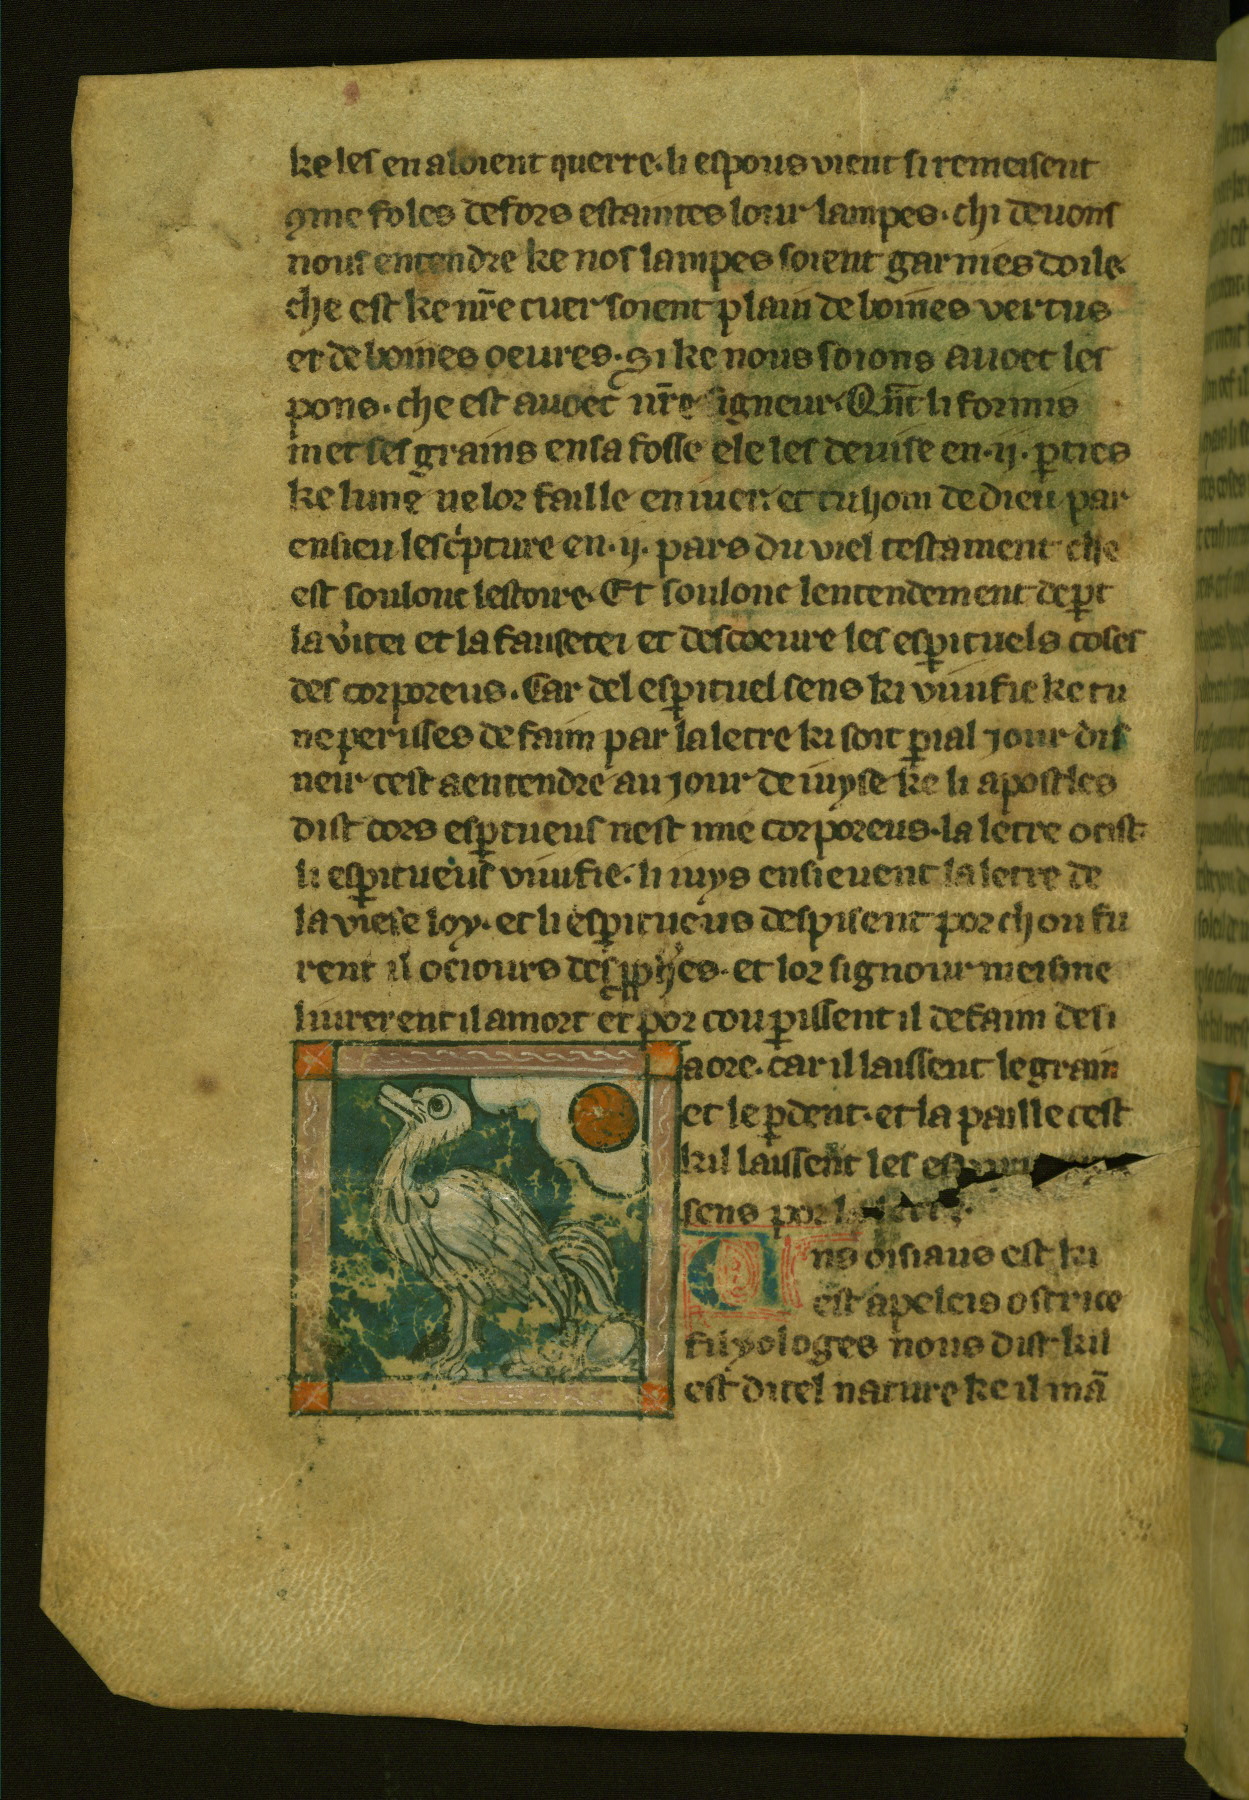 ke les en aloient querre. li espous vient si remeisent
ꝯme foles defors estaintes lour lampes. chi deuons
nous entendre ke nos lampes soient garnies doile
che est ke nr̄e cuer soient plain de boines vertus
et de boines oeures. Si ke nous soions auoec les
pons. che est auoec nr̄e signeur. Qn̄t li formis
met ses grains en sa fosse ele les deuise en .ij. ꝑties
ke lune ne lor faille en iuer. et tu hom de dieu par
ensieu lescͥpture en .ij. pars du viel testament che
est soulonc lestoire. Et soulonc lentendement depꝛt
la v̓itei et la fausetei et descoeure les esꝑituels coses
des corporeus. Car del esꝑituel sens ki viuifie ke tu
ne perisses de faim par la letre ki soit ꝑ ial jour dis
neir cest a entendre au jour de iuyse ke li apostles
dist dors esꝑtueus nest mie corporeus. la letre ocist
li esꝑitueus viuifie. li iuys ensieuent la letre de
la viese loy. et li esꝑitueus despisent por chou fu
rent il ociours des ꝓphes. et lor signour meisme
liurerent il a mort et por cou ꝑissent il de faim desi
a ore. car il laissent le grain
et le ꝑdent. et la paille cest
kil laissent les
sens por
Uns oisiaus est ki
est apeleis ostrice
fisyologes nous dist kil
est ditel nature ke il mā